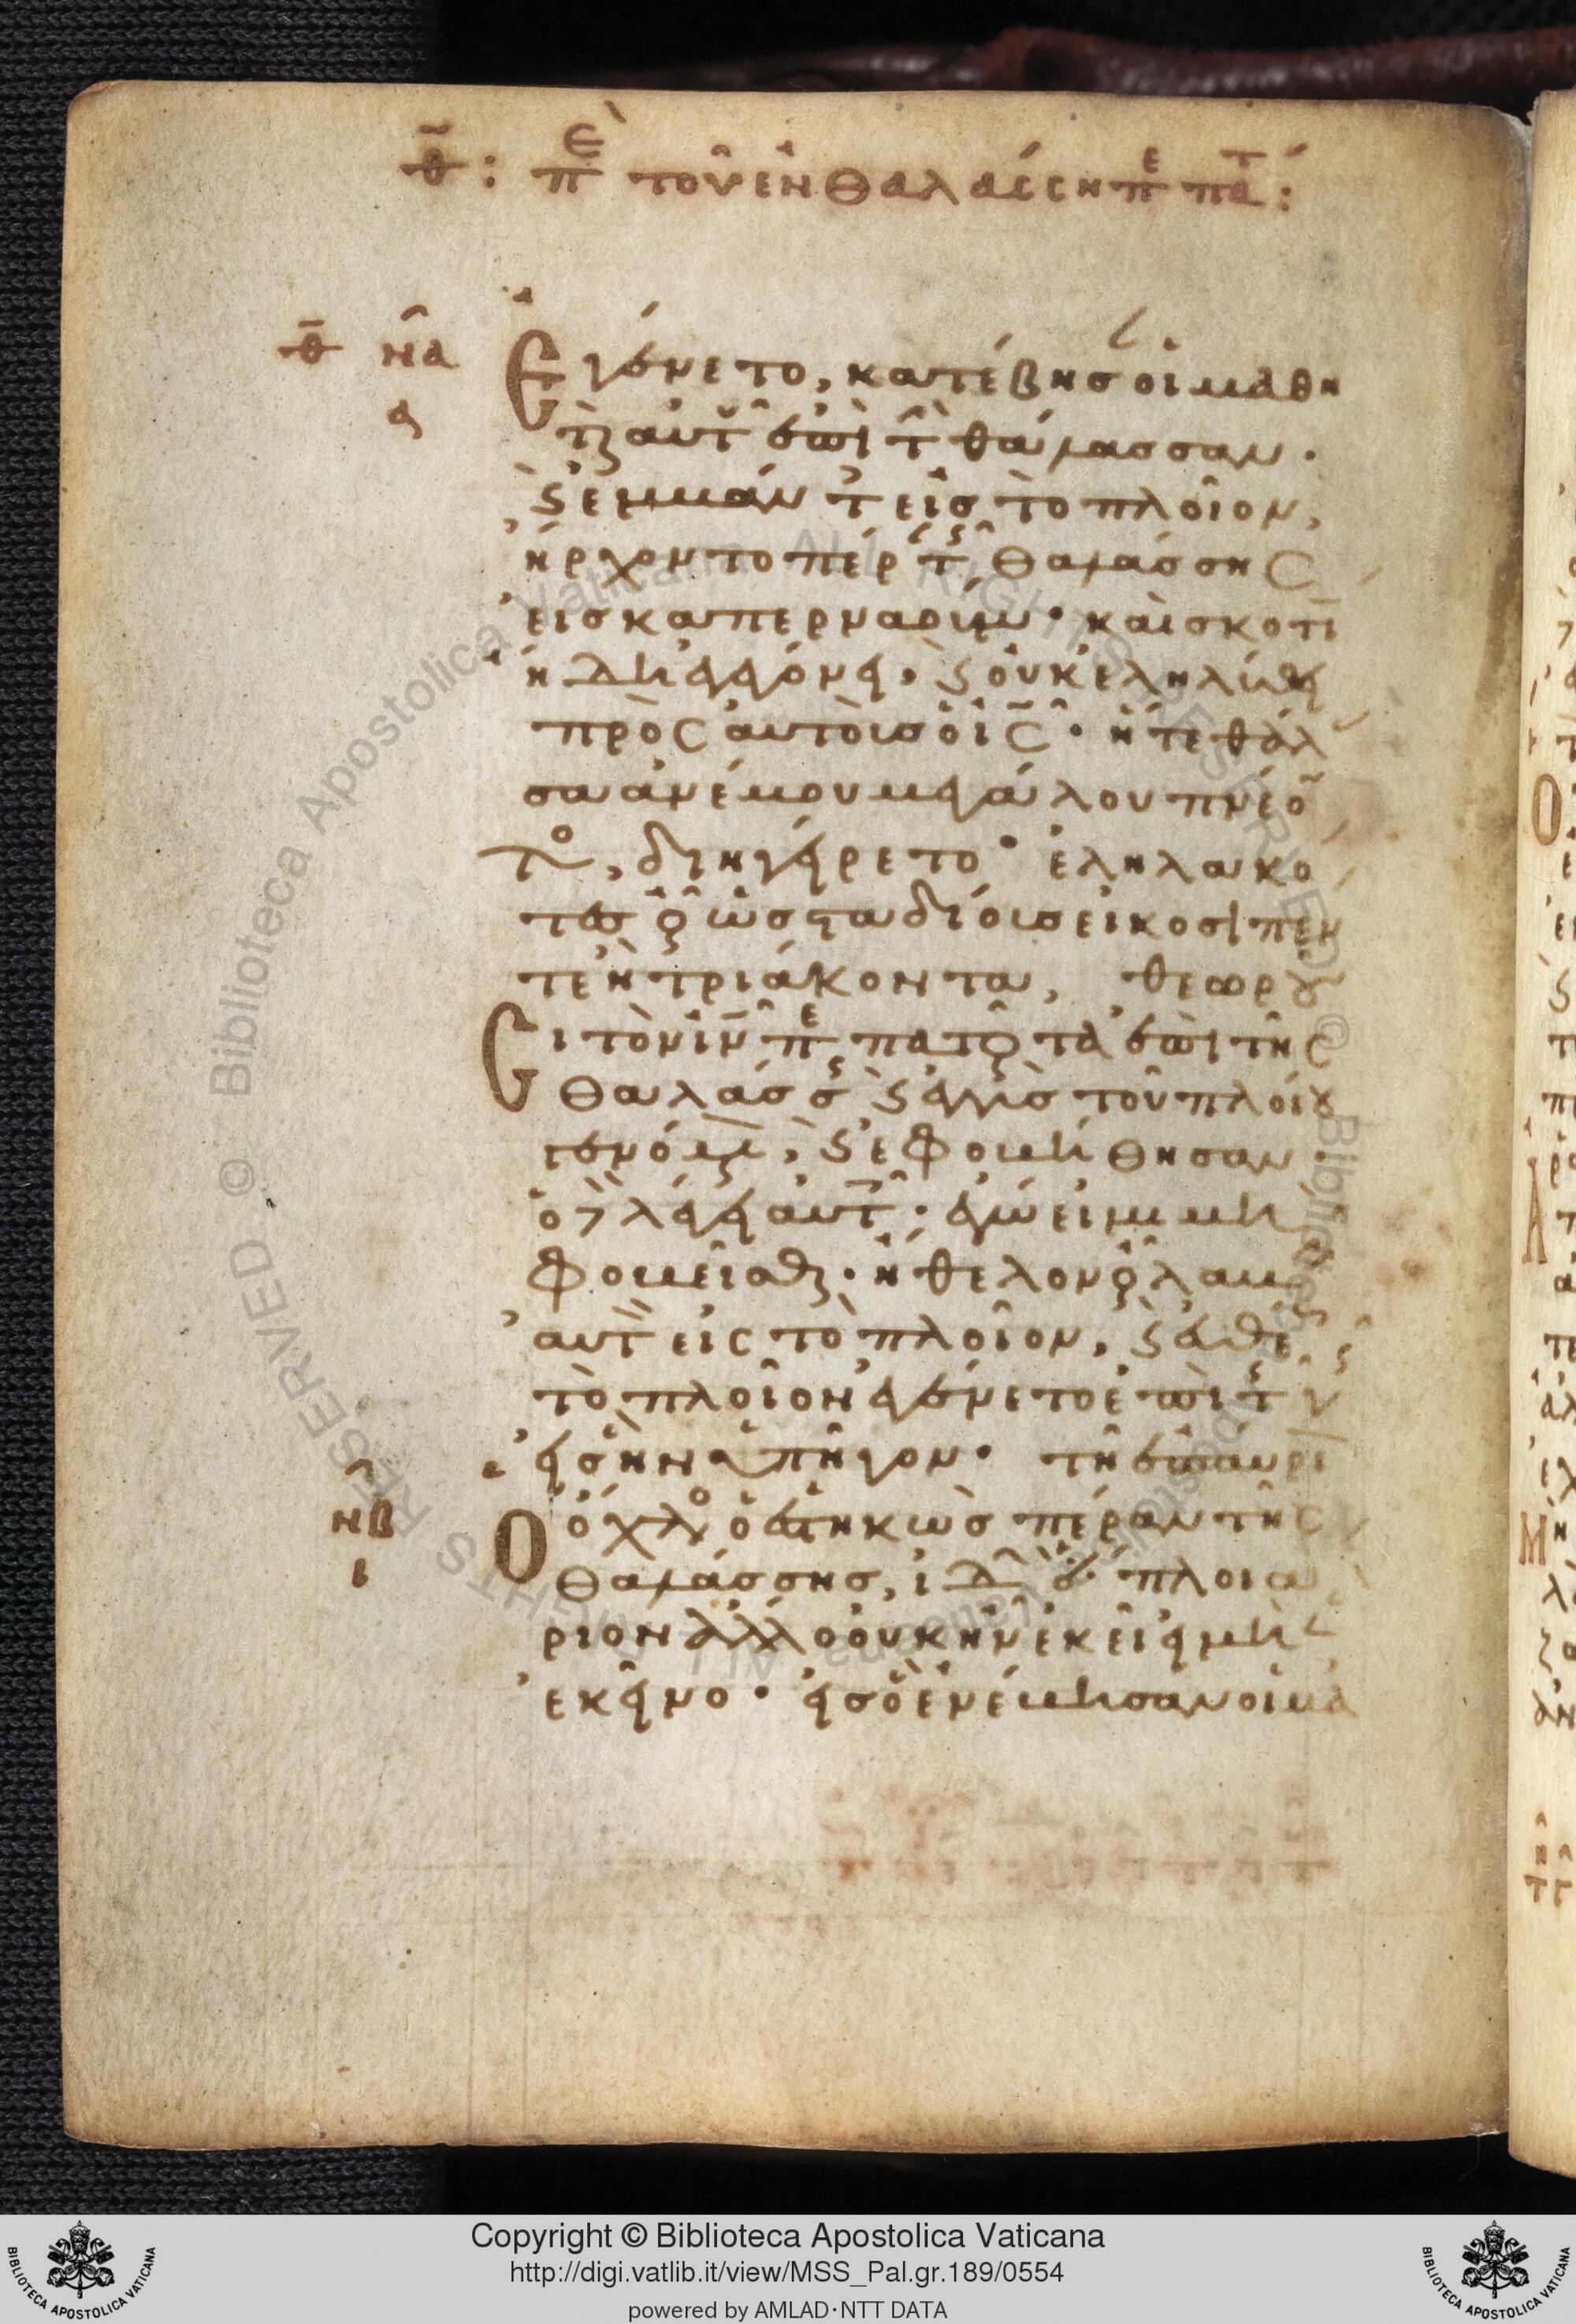 θ̅: πὲ τοῦ ἐν θαλάσσῃ πε πατ́:
θ̅ ν̂α
Ἐγένετο, κατέβησ οἱ μαθη
α
τ̀ϗ αὐτ̂ ἐπὶ τ̂ θάλασσαν.
ϗ̀ ἐμμάν τ εἰσ τὸ πλοῖον,
ἤρχοντο πέρ τ̂ς θαλάσσης
εἰσ καπερναούμ· καὶ σκοτί
ἤδη ἐγεγόνει, ϗ̀ οὐκ ἐληλύθει
πρὸς αὐτοὺσ ὁ ι̅ς̅· ἥ τε θάλ
σα ἀνέμου μεγάλου πνέο
το, διηγείρετο· ἐληλακό
τεσ οὖ ὡσ σταδίουσ εἰκοσι πέν
τε ἢ τριάκοντα, θεωροῦ
σι τὸν ι̅ν̅ πε πατοῦτα ἐπὶ τῆς
θαλάσσ ϗ̀ ἐγγὺσ τοῦ πλοίου
γενόμε, ϗ̀ ἐφοβήθησαν·
ὁ δὲ λέγει αὐτ̂· ἐγώ εἰμι μὴ
φοβεῖσθε· ἤθελον οὖ λαβ
αὐτ̀ εἰς τὸ πλοῖον, ϗ̀ εὐθέ
τὸ πλοῖον ἐγένετο ἐπὶ τ̂ς γ
εἰσ ἣν ὑπῆγον· τῇ ἐπαύρι
ν̂β
Ὁ ὄχλο ὁ ἑστηκὼσ πέραν τῆς
ι
θαλάσσησ, ἰδ ὅτι πλοιά
ριον ἄλλο οὐκ ἦν ἐκεῖ εἰ μὴ
ἐκεῖνο· εἰσ ὃ ἐνέβησαν οἱ μα
Copyright © Biblioteca Apostolica Vaticana
http://digi.vatlib.it/view/MSS_Pal.gr.189/0554
powered by AMLAD·NTT DATA
BIBLIOTECA APOSTOLICA VATICANA
BIBLIOTECA APOSTOLICA VATICANA